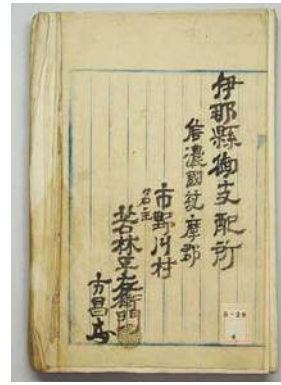 伊那縣御支配所
信濃國筑摩郡
市野川村
名主
若林平左衛門
方昌